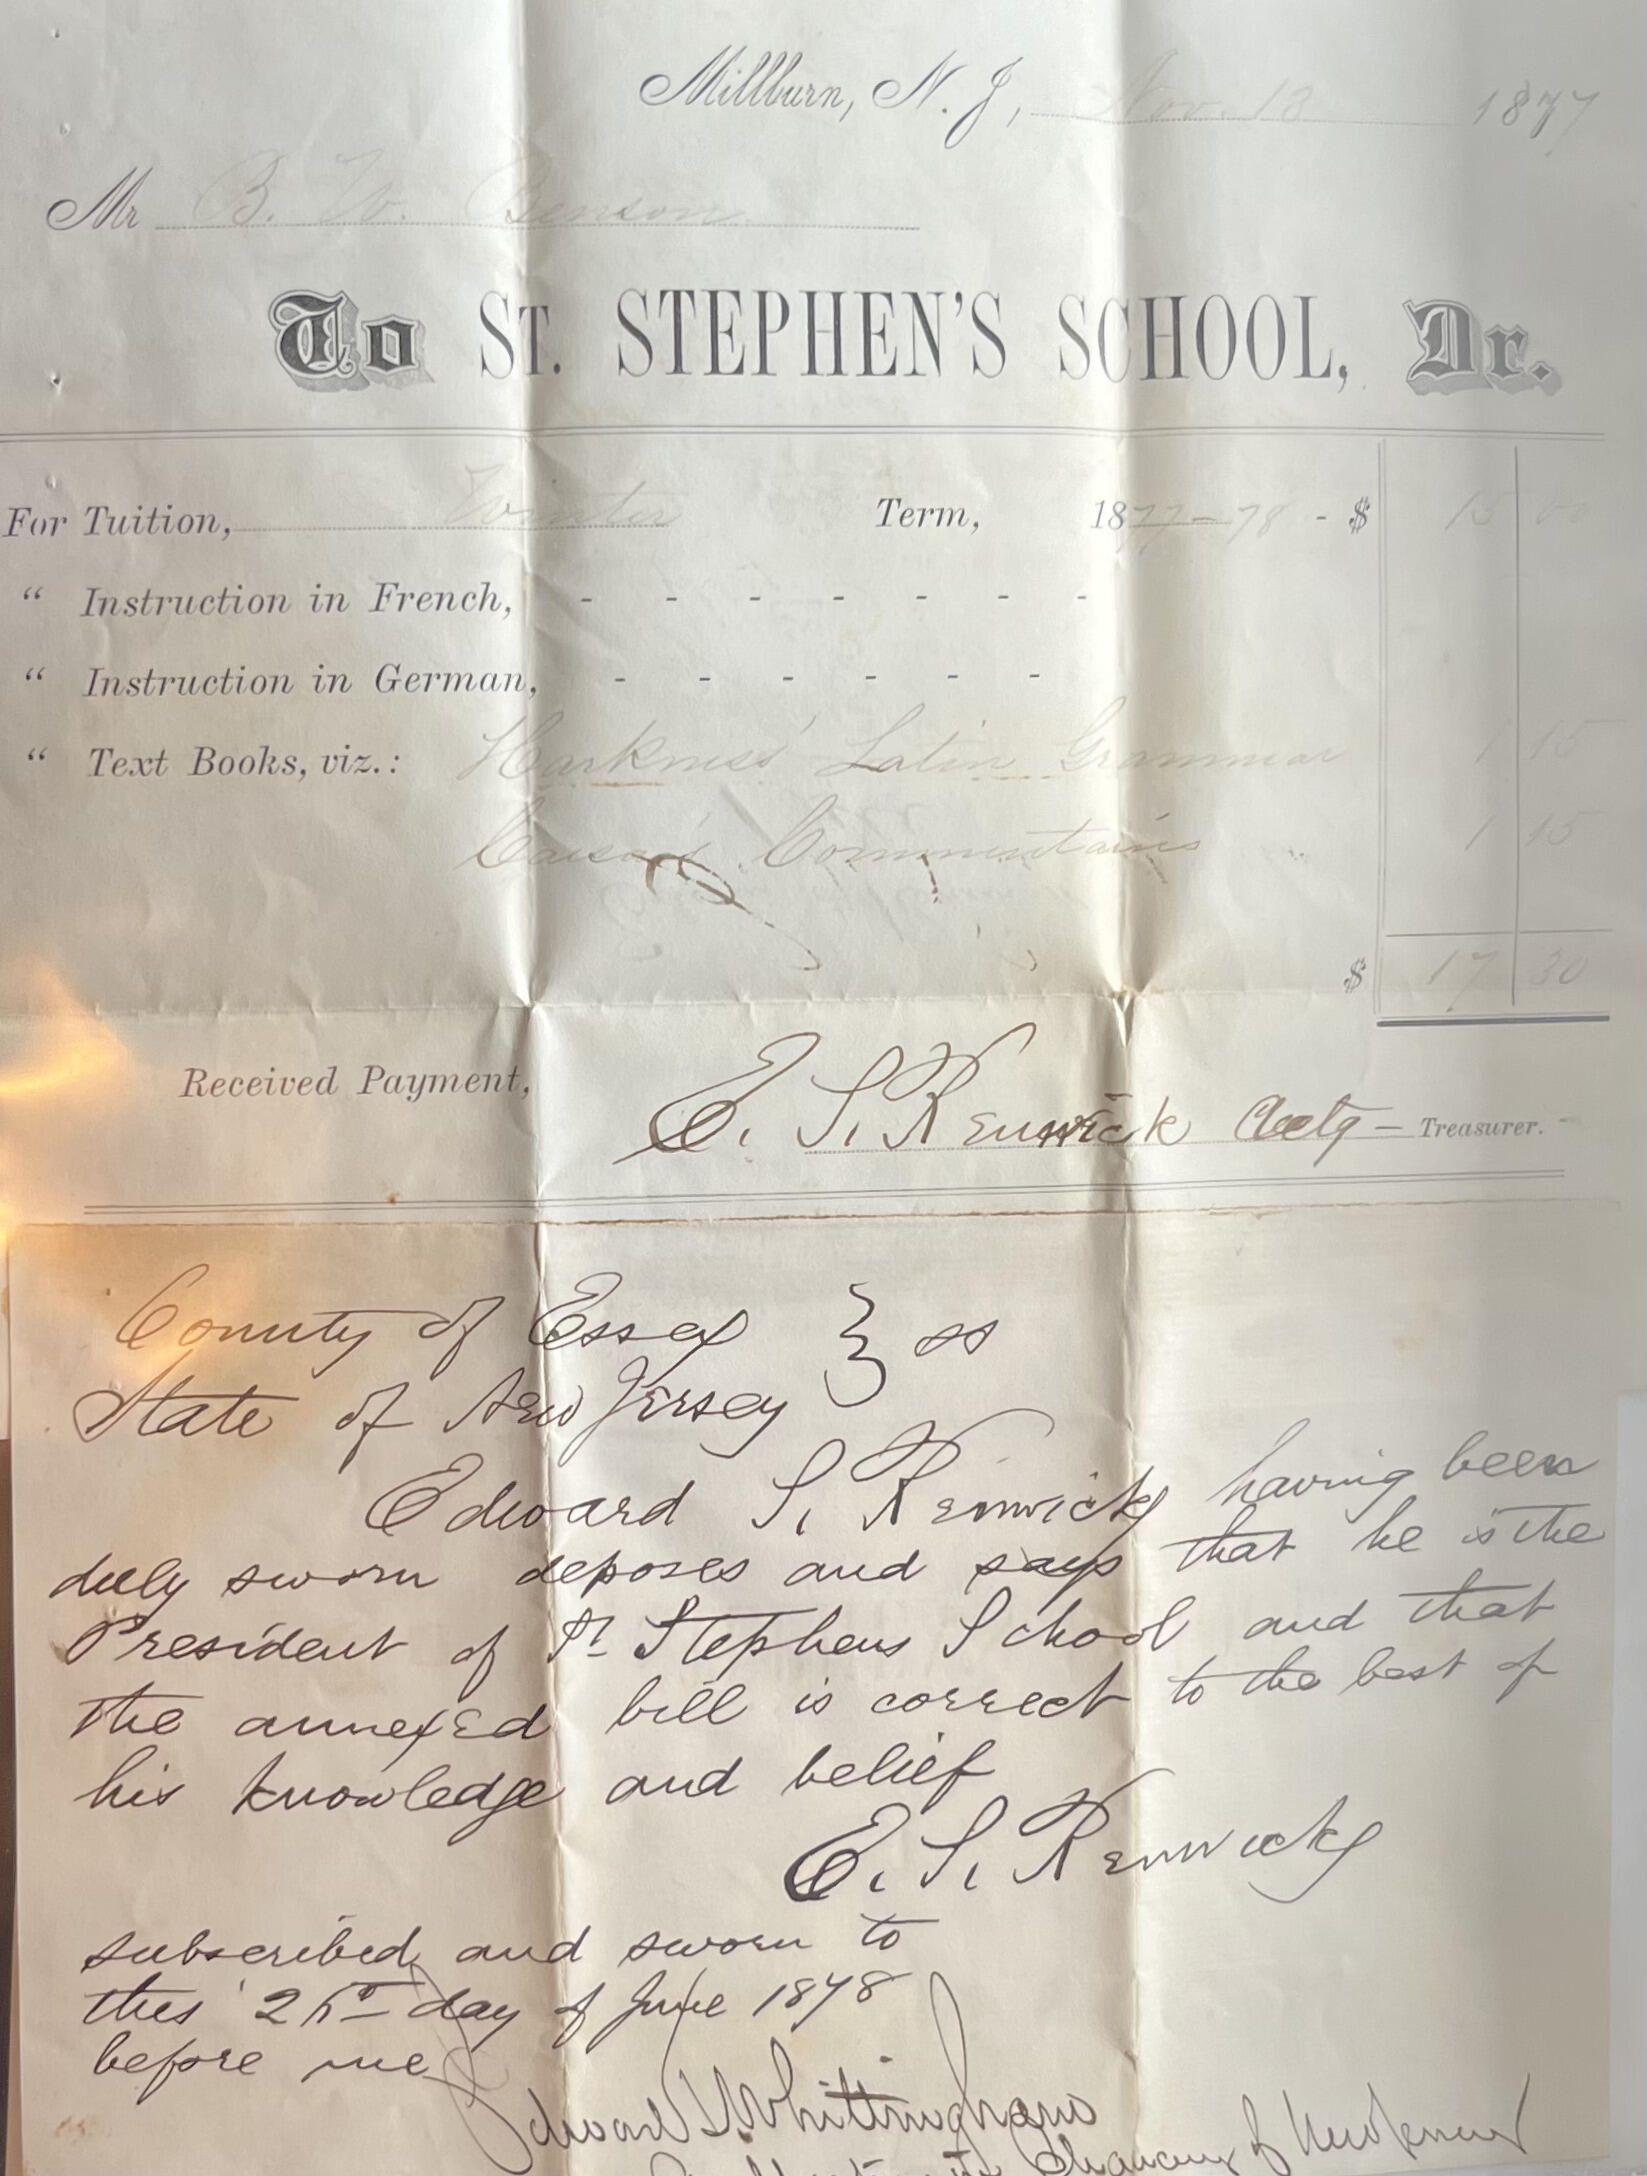 Millburn, N. J., Nov. 13 1877
Mr B. W. Benson
To ST. STEPHEN'S SCHOOL, Dr.
For Tuition, Winter Term, 1877-78 - $ 15 00
“ Instruction in French, - - - - - - -
“ Instruction in German, - - - - - -
“ Text Books, viz.: Harkness' Latin Grammar 1 15
Caesar's Commentaries 1 15
$ 17 30
Received Payment, E. S. Renwick Actg - Treasurer.
County of Essex } ss
State of New Jersey
Edward S. Renwick having been
duly sworn deposes and says that he is the
President of St Stephens School and that
the annexed bill is correct to the best of
his knowledge and belief
E. S. Renwick
subscribed and sworn to
this day of June 1878
before me
Edward Whittingham
Chancery of New Jersey